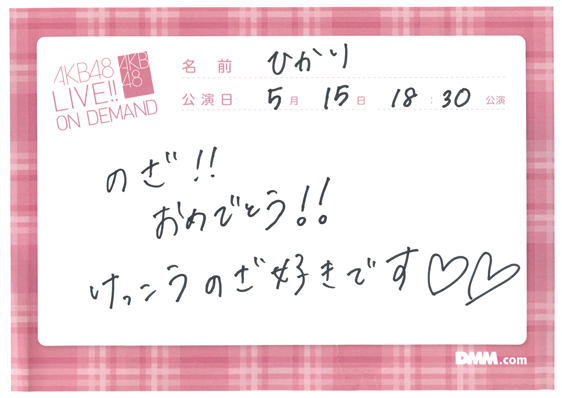 AKB48
LIVE!!
ON DEMAND
AKB
48
名前 ひかり
公演日 5月 15日 18:30 公演
のざ!!
おめでとう!!
けっこうのざ好きです♡♡
DMM.com